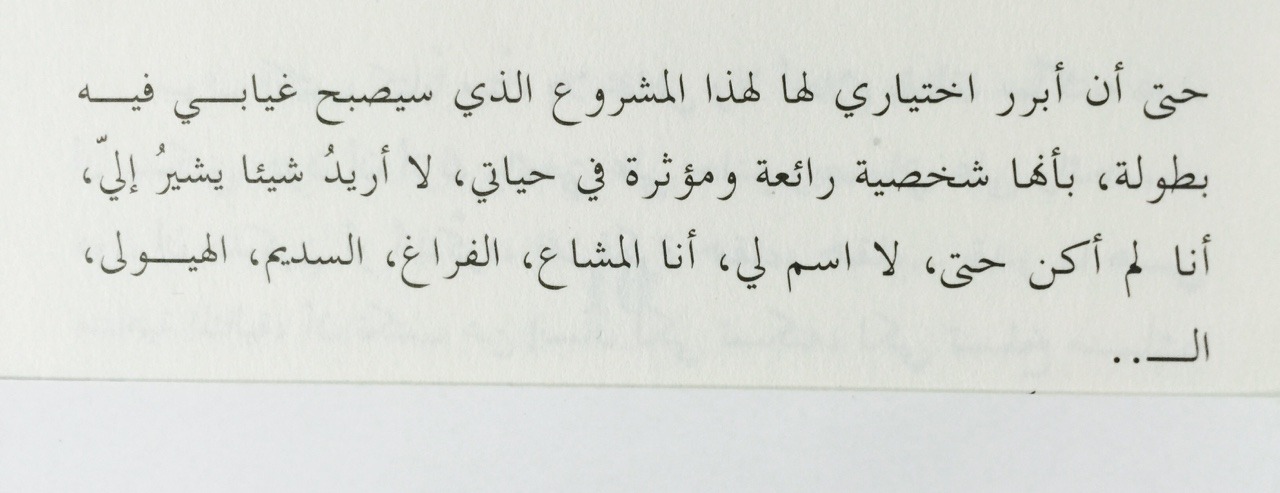 حتى أن أبرر اختياري لها لهذا المشروع الذي سيصبح غيابـــي فيـــه
بطولة، بأنها شخصية رائعة ومؤثرة في حياتي، لا أريدُ شيئا يشيرُ إليّ،
أنا لم أكن حتى، لا اسم لي، أنا المشاع، الفراغ، السديم، الهيـــولى،
الـــ..